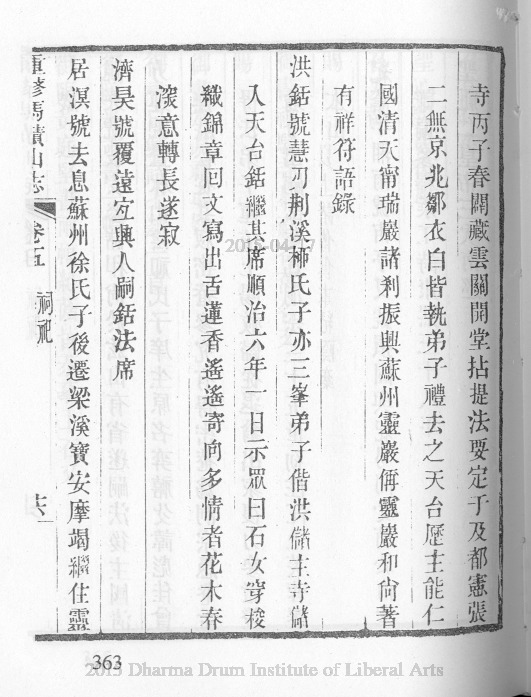 寺丙子春闢藏雲關開堂拈提法要定于及都憲張
二無京兆鄒衣白皆執弟子禮去之天台歷主能仁
國清天甯瑞巖諸刹振興蘇州靈巖偁靈巖和尙著
有祥符語錄
洪銛號慧刃荆溪柿氏子亦三峯弟子偕洪儲主寺儲
入天台銛繼其席順治六年一日示眾曰石女穿梭
織錦章回文寫出舌蓮香遙遙寄向多情者花木春
深意轉長遂寂
濟昊號覆遠宜興人嗣銛法席
居溟號去息蘇州徐氏子後遷梁溪寶安摩竭繼住靈
重修馬蹟山志 卷五 祠祀 六
363
2013 Dharma Drum Institute of Liberal Arts